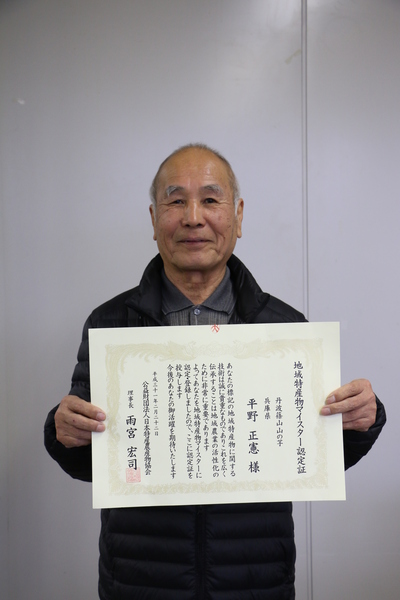 地域特産物マイスター認定証
丹波篠山山の芋
兵庫県
平野 正憲 様
あなたの標記の地域特産物に関する
技術は誠に貴重なものでありこれを広く
伝承することは地域農業の活性化の
ために非常に重要であります
よってあなたを地域特産物マイスターに
認定登録しましたので、ここに認定証を
授与します
今後のあなたの御活躍を期待いたします
平成三十一年二月二十二日
公益財団法人日本特産農産物協会
理事長 雨宮 宏司